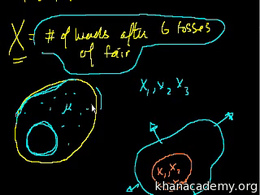 X = # of heads after 6 tosses
of fair
X₁, X₂ X₃
μ
X₁, X₂
khanacademy.org